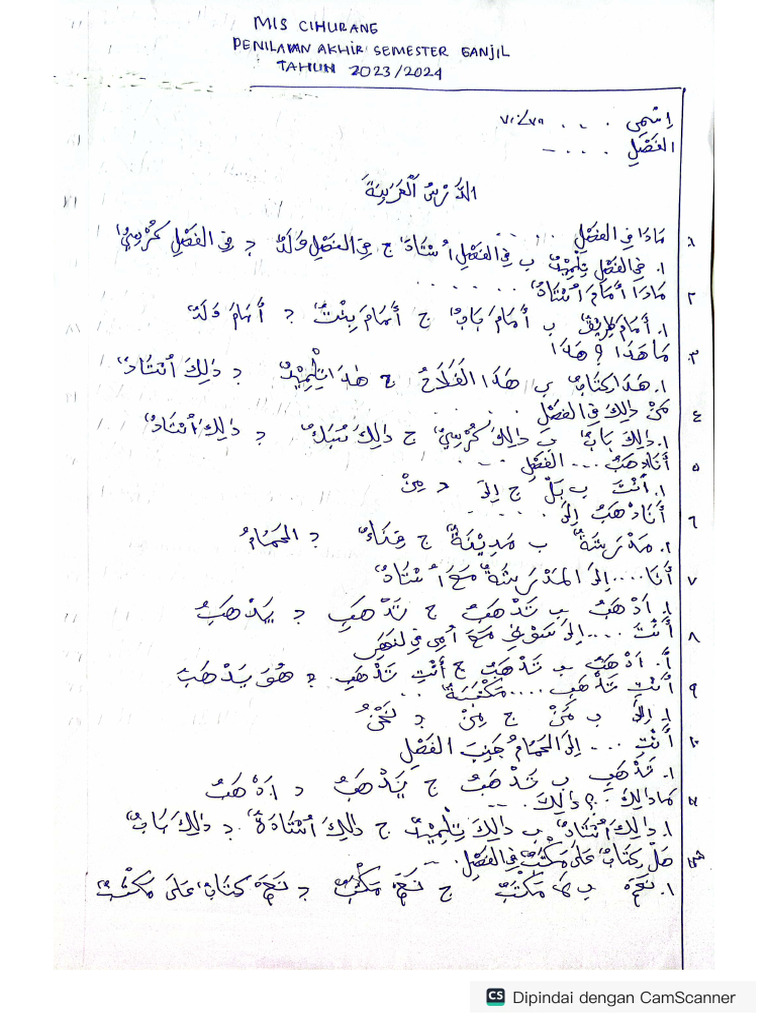 MIS CIHURANG
PENILAIAN AKHIR SEMESTER GANJIL
TAHUN 2023/2024
اِسْمِى . . .
الفَصْلِ . . . -
الدَّرْسُ الْعَرَبِيَةَ
١ مَاذَا فِى الفَصْلِ . . . . .
١. فِى الفَصْلِ تِلْمِيْذٌ ب فِى الفَصْلِ اُسْتَاذٌ ج فِى الفَصْلِ وَلَدٌ د فِى الفَصْلِ كُرْسِيٌ
٢ مَاذَا أَمَامَ اُسْتَاذٌ . . . . . . .
١. أَمَامَ طَرِيْقٌ ب أَمَامَ بَابٌ ج أَمَامَ بِنْتٌ د أَمَامَ وَلَدٌ
٣ مَا هَذَا ؟ هَذَا
١. هَذَا كِتَابٌ ب هَذَا الفَلَاحُ ج هٰذَا تِلْمِيْذٌ د ذَالِكَ اُسْتَاذٌ
٤ مَنْ ذَالِكَ فِى الفَصْلِ . . . . .
١. ذَالِكَ بَابٌ ب ذَالِكَ كُرْسِيٌ ج ذَالِكَ د ذَالِكَ اُسْتَاذٌ
٥ أَنَا اَذْهَبُ . . . الفَصْلِ . . .
١. أَنْتَ ب بَلْ ج اِلَى د مِنْ
٦ أَنَا اَذْهَبُ اِلَى . . . . .
١. مَدْرَسَةٌ ب مَدِيْنَةٌ ج فِنَاءٌ د الحَمَامُ
٧ أَنَا . . . . اِلَى المَدْرَسَةٌ مَعَ اُسْتَاذٌ
١. اَذْهَبُ ب تَذْهَبُ ج تَذْهَبِ د يَذْهَبُ
٨ أَنْتَ . . . . اِلَى سَوْقٍ مَعَ اُمِى فِى
أ. اَذْهَبُ ب تَذْهَبُ ج أَنْتِ تَذْهَبِ د هُوَ يَذْهَبُ
٩ أَنْتِ تَذْهَبِ . . . . مَكْتَبَةٌ . . .
١. اِلَى ب مَنْ ج مِنْ د نَحْنُ
١٠ أَنْتِ . . . اِلَى الحَمَامُ جَنِبَ الفَصْلِ
١. تَذْهَبِ ب تَذْهَبُ ج يَذْهَبُ د اَذْهَبُ
١١ مَاذَالِكَ ؟ ذَالِكَ . . . .
١. ذَالِكَ اُسْتَاذٌ ب ذَالِكَ تِلْمِيْذٌ ج ذٰالِكَ اُسْتَاذَةٌ د ذٰالِكَ بَابٌ
هَلْ كِتَابٌ عَلَى مَكْتَبٌ فِى الفَصْلِ . -
١. نَعَمْ ب مَكْتَبٌ ج نَعَمْ مَكْتَبٌ د نَعَمْ كِتَابٌ عَلَى مَكْتَبٌ
CS Dipindai dengan CamScanner